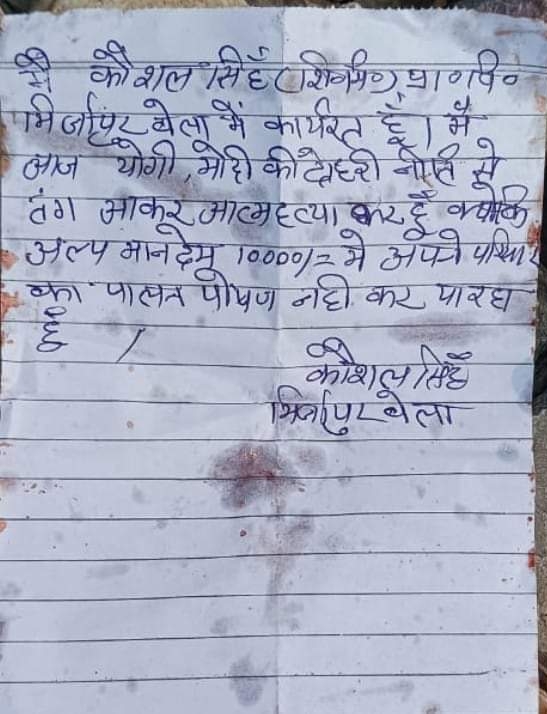 मै कौशल सिंह (शि०मि०) प्रा० वि०
मिर्जापुर बेला में कार्यरत हूँ। मैं
आज योगी, मोदी की दोहरी नीति से
तंग आकर आत्महत्या कर हूँ क्योंकि
अल्प मानदेय 10000/= मे अपने परिवार
का पालन पोषण नही कर पा रहा
हूँ ।
कौशल सिंह
मिर्जापुर बेला